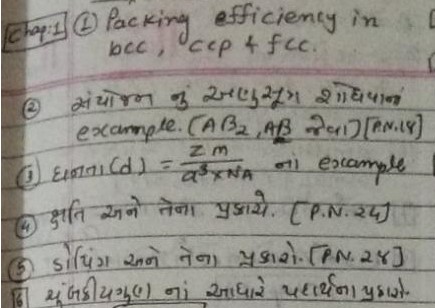 Chap:1 ① Packing efficiency in
bcc, ccp & fcc.
② સંયોજન નું અણુસૂત્ર શોધવાનાં
example. (AB₂, AB જેવા) [P.N.18]
③ ઘનતા (d) = zm / a³×NA ના example
④ ક્ષતિ અને તેના પ્રકારો. [P.N. 24]
⑤ ડોપિંગ અને તેના પ્રકારો. [P.N. 28]
⑥ ચુંબકીયગુણ નાં આધારે પદાર્થના પ્રકારો.